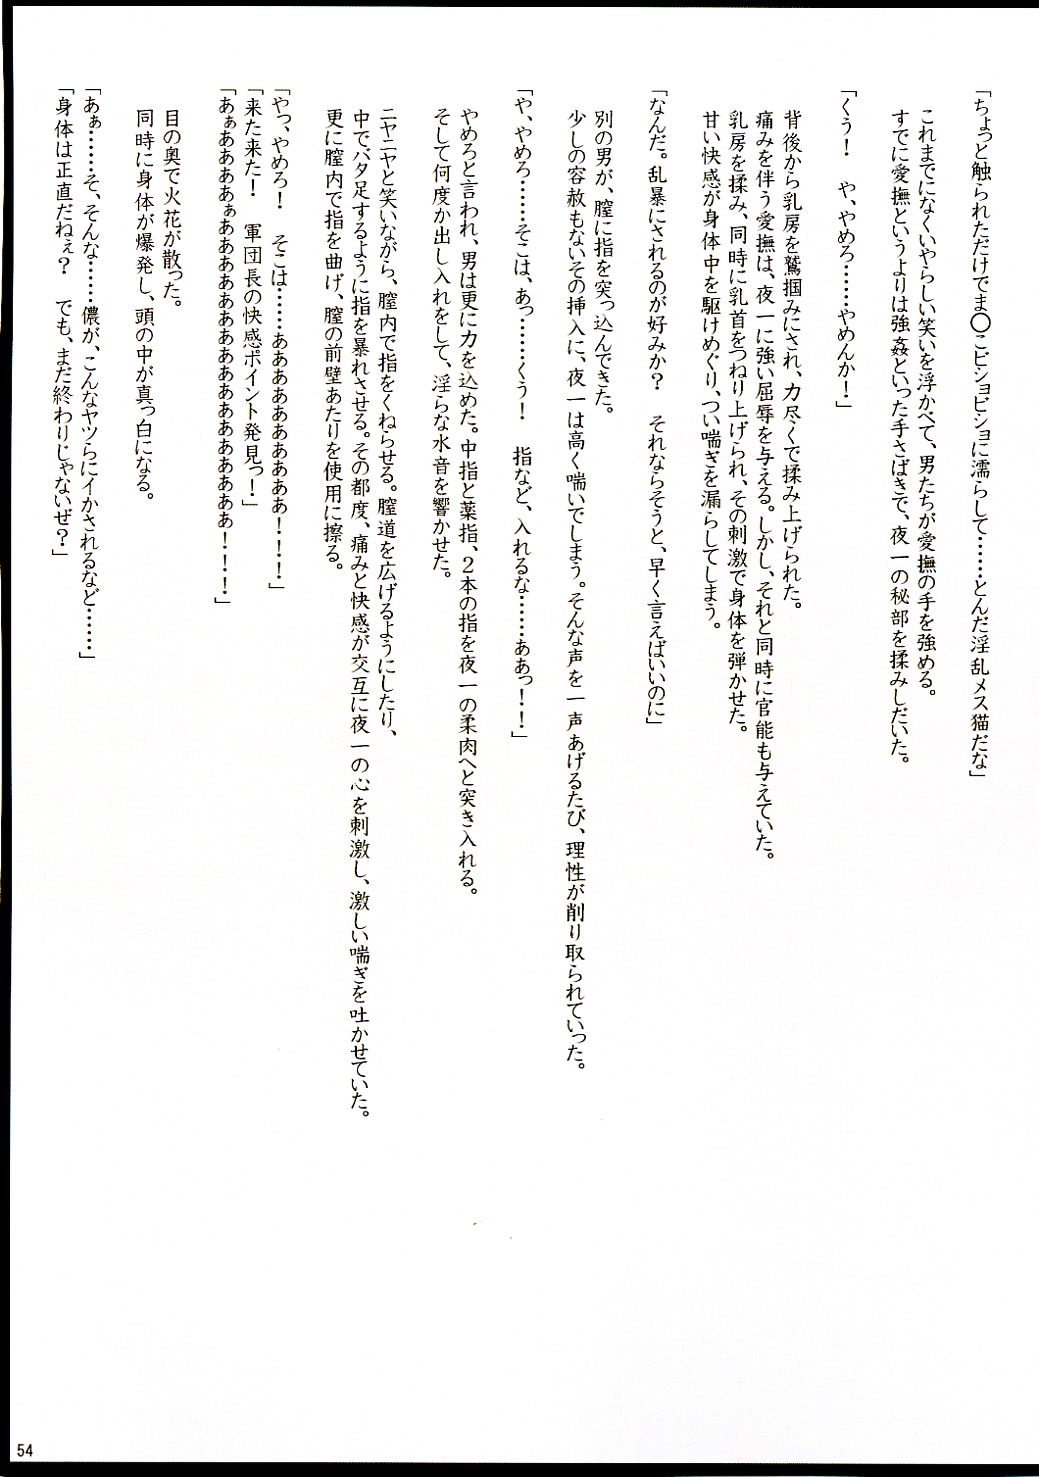 「ちょっと触られただけでま◯こビショビショに濡らして……とんだ淫乱メス猫だな」
これまでになくいやらしい笑いを浮かべて、男たちが愛撫の手を強める。
すでに愛撫というよりは強姦といった手さばきで、夜一の秘部を揉みしだいた。
「くぅ！　や、やめろ……やめんか！」
背後から乳房を鷲掴みにされ、力尽くで揉み上げられた。
痛みを伴う愛撫は、夜一に強い屈辱を与える。しかし、それと同時に官能も与えていた。
乳房を揉み、同時に乳首をつねり上げられ、その刺激で身体を弾かせた。
甘い快感が身体中を駆けめぐり、つい喘ぎを漏らしてしまう。
「なんだ。乱暴にされるのが好みか？　それならそうと、早く言えばいいのに」
別の男が、膣に指を突っ込んできた。
少しの容赦もないその挿入に、夜一は高く喘いでしまう。そんな声を一声あげるたび、理性が削り取られていった。
「や、やめろ……そこは、あっ……くぅ！　指など、入れるな……ああっ！！」
やめろと言われ、男は更に力を込めた。中指と薬指、２本の指を夜一の柔肉へと突き入れる。
そして何度か出し入れをして、淫らな水音を響かせた。
ニヤニヤと笑いながら、膣内で指をくねらせる。膣道を広げるようにしたり、
中でバタ足するように指を暴れさせる。その都度、痛みと快感が交互に夜一の心を刺激し、激しい喘ぎを吐かせていた。
更に膣内で指を曲げ、膣の前壁あたりを使用に擦る。
「やっ、やめろ！　そこは……ああああああああぁ！！！」
「来た来た！　軍団長の快感ポイント発見っ！」
「あぁああああぁあああああああああああああぁ！！！」
目の奥で火花が散った。
同時に身体が爆発し、頭の中が真っ白になる。
「あぁ……そ、そんな……儂が、こんなヤツらにイかされるなど……」
「身体は正直だねぇ？　でも、まだ終わりじゃないぜ？」
54